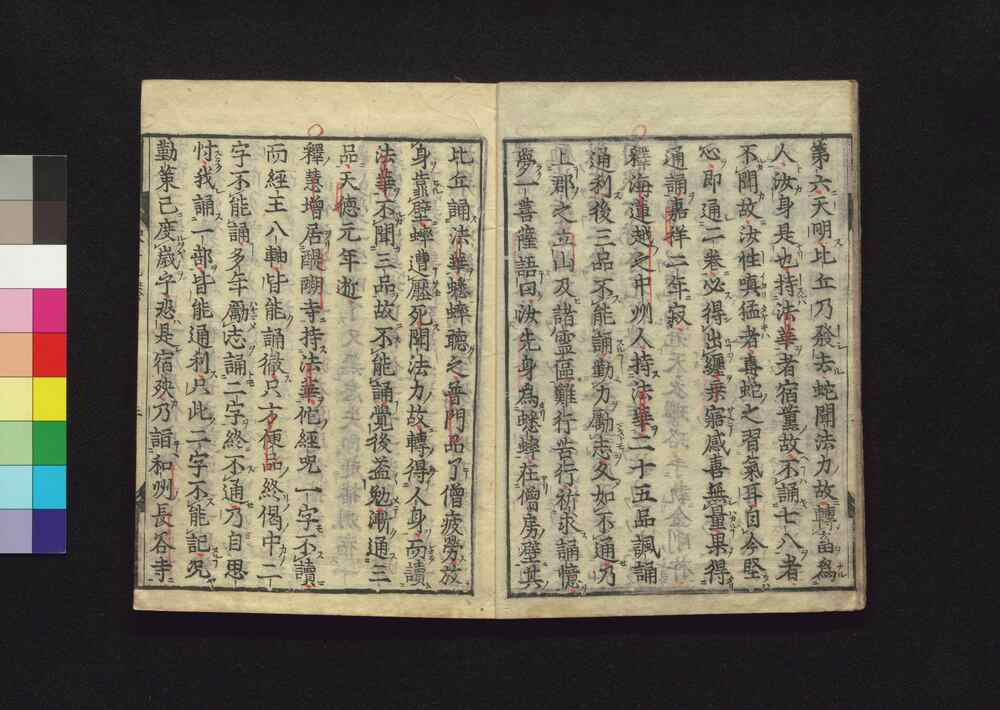 第六天明比丘乃發去蛇聞法力故轉畜爲
人汝身是也持法華者宿薫故不誦七八者
不聞故汝性嗔猛者毒蛇之習氣耳自今堅
心即通二巻必得出纏乗寤感喜無量果得
通誦嘉祥二年寂
釋海蓮越之中州人持法華二十五品諷誦
通利後三品不能誦勤力勵志久如不通乃
上郡之立山及諸霊區難行苦行祈求誦憶
夢一菩薩語曰汝先身爲蟋蟀在僧房壁其
比丘誦法華蟋蟀聴之普門品了僧疲勞放
身靠壁蟀遭壓死聞法力故轉得人身而讀
法華不聞三品故不能誦覺後益勉漸通三
品天德元年逝
釋慧增居醍醐寺持法華他經咒一字不讀
而經王八軸皆能誦徹只方便品終偈中二
字不能誦多年勵志誦二字終不通乃自思
忖我誦一部皆能通利只此二字不能記況
勤策已度歳乎恐是宿殃乃詣和州長谷寺